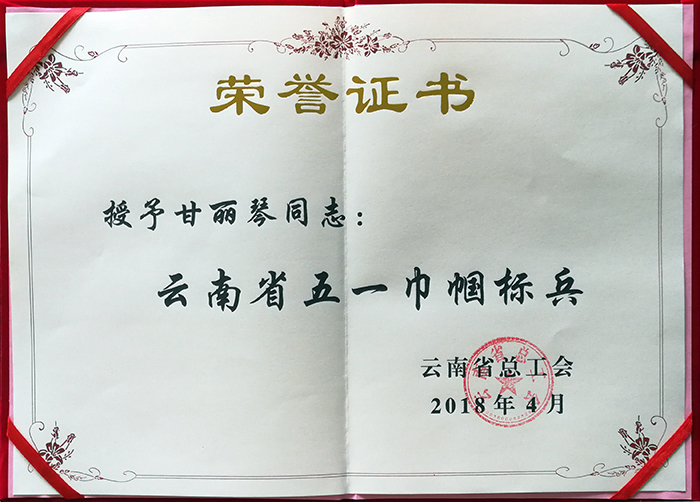 荣誉证书
授予甘丽琴同志：
云南省五一巾帼标兵
云南省总工会
2018年4月